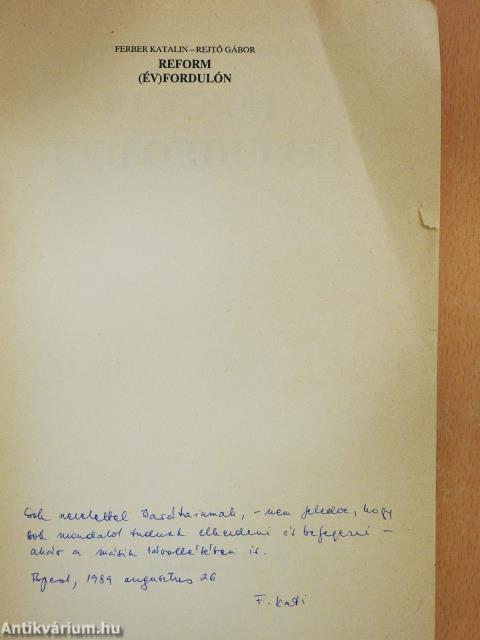 FERBER KATALIN–REJTŐ GÁBOR
REFORM
(ÉV)FORDULÓN
Sok szeretettel Barátaimnak, – nem feledve, hogy
sok mondatot tudunk elkezdeni és befejezni –
akár a másik távollétében is.
Bpest, 1989 augusztus 26
F. Kati
Antikvárium.hu